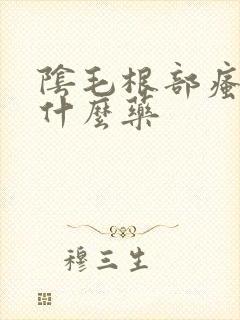 陰毛根部瘙
什麼藥
穆三生